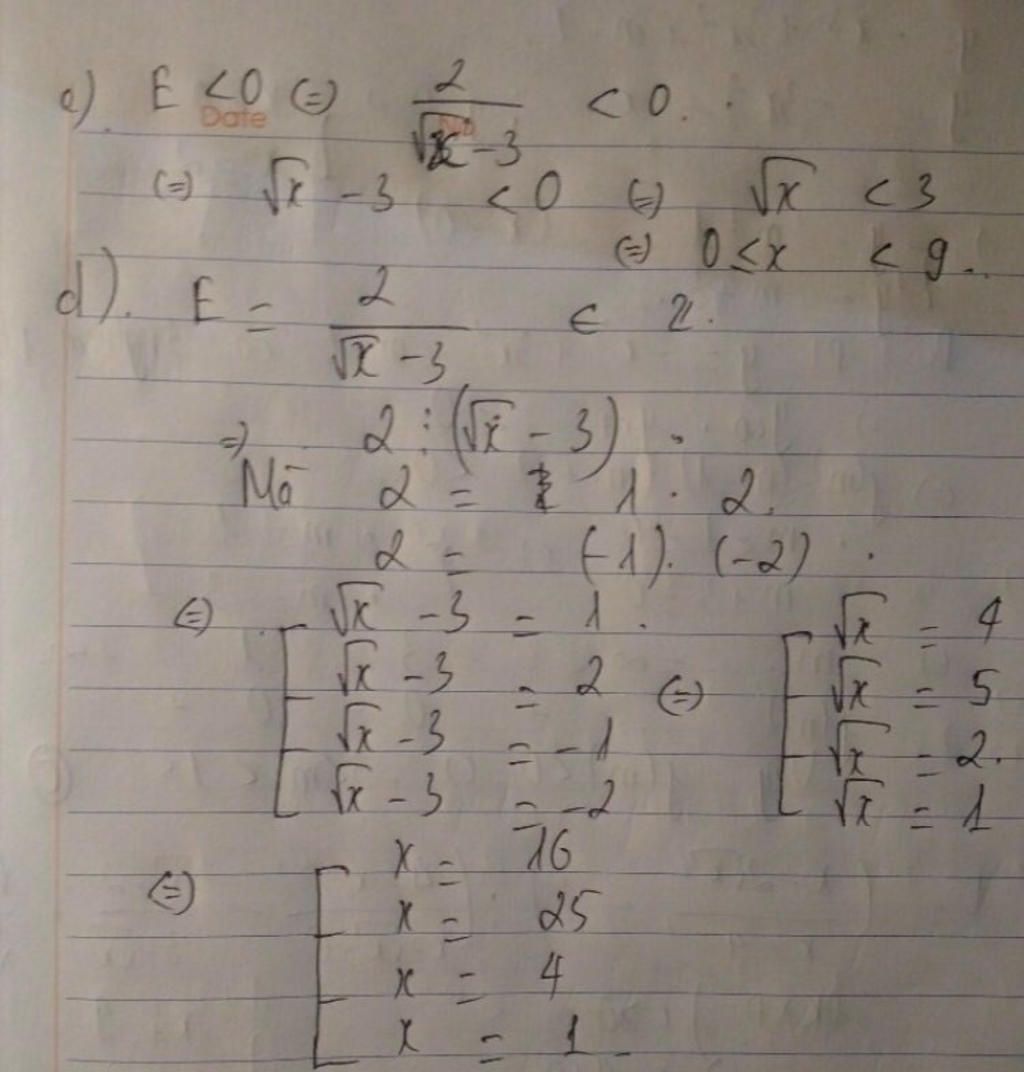 c) E < 0 (=) 2/(√x - 3) < 0.
Date
(=) √x - 3 < 0 (=) √x < 3
(=) 0 ≤ x < 9..
d). E = 2/(√x - 3) ∈ Z.
=) 2 ⋮ (√x - 3).
Mà 2 = 1 . 2.
2 = (-1). (-2).
(=) [ √x - 3 = 1. (=) [ √x = 4
√x - 3 = 2 √x = 5
√x - 3 = -1 √x = 2.
√x - 3 = -2 √x = 1
(=) [ x = 16
x = 25
x = 4
x = 1